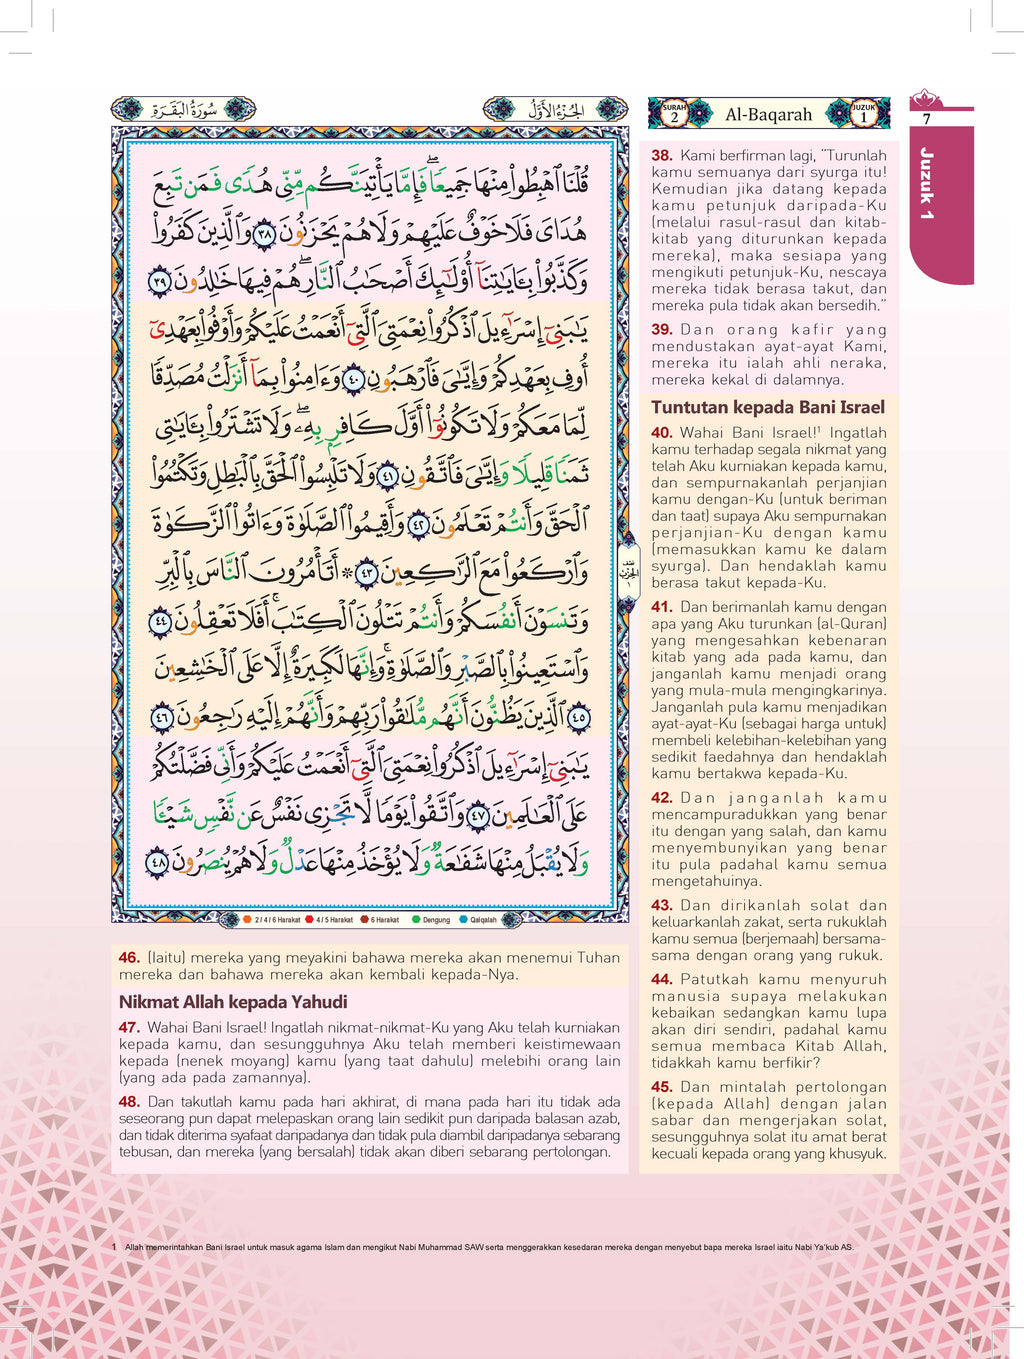 سُورَةُ البَقَرَةِ
الجُزْءُ الأَوَّلُ
قُلْنَا ٱهْبِطُوا۟ مِنْهَا جَمِيعًا ۖ فَإِمَّا يَأْتِيَنَّكُم مِّنِّى هُدًى فَمَن تَبِعَ
هُدَاىَ فَلَا خَوْفٌ عَلَيْهِمْ وَلَا هُمْ يَحْزَنُونَ ٣٨ وَٱلَّذِينَ كَفَرُوا۟
وَكَذَّبُوا۟ بِـَٔايَـٰتِنَآ أُو۟لَـٰٓئِكَ أَصْحَـٰبُ ٱلنَّارِ ۖ هُمْ فِيهَا خَـٰلِدُونَ ٣٩
يَـٰبَنِىٓ إِسْرَٰٓءِيلَ ٱذْكُرُوا۟ نِعْمَتِىَ ٱلَّتِىٓ أَنْعَمْتُ عَلَيْكُمْ وَأَوْفُوا۟ بِعَهْدِىٓ
أُوفِ بِعَهْدِكُمْ وَإِيَّـٰىَ فَٱرْهَبُونِ ٤٠ وَءَامِنُوا۟ بِمَآ أَنزَلْتُ مُصَدِّقًا
لِّمَا مَعَكُمْ وَلَا تَكُونُوٓا۟ أَوَّلَ كَافِرٍۭ بِهِۦ ۖ وَلَا تَشْتَرُوا۟ بِـَٔايَـٰتِى
ثَمَنًا قَلِيلًا وَإِيَّـٰىَ فَٱتَّقُونِ ٤١ وَلَا تَلْبِسُوا۟ ٱلْحَقَّ بِٱلْبَـٰطِلِ وَتَكْتُمُوا۟
ٱلْحَقَّ وَأَنتُمْ تَعْلَمُونَ ٤٢ وَأَقِيمُوا۟ ٱلصَّلَوٰةَ وَءَاتُوا۟ ٱلزَّكَوٰةَ
وَٱرْكَعُوا۟ مَعَ ٱلرَّٰكِعِينَ ٤٣ ۞ أَتَأْمُرُونَ ٱلنَّاسَ بِٱلْبِرِّ
وَتَنسَوْنَ أَنفُسَكُمْ وَأَنتُمْ تَتْلُونَ ٱلْكِتَـٰبَ ۚ أَفَلَا تَعْقِلُونَ ٤٤
وَٱسْتَعِينُوا۟ بِٱلصَّبْرِ وَٱلصَّلَوٰةِ ۚ وَإِنَّهَا لَكَبِيرَةٌ إِلَّا عَلَى ٱلْخَـٰشِعِينَ
٤٥ ٱلَّذِينَ يَظُنُّونَ أَنَّهُم مُّلَـٰقُوا۟ رَبِّهِمْ وَأَنَّهُمْ إِلَيْهِ رَٰجِعُونَ ٤٦
يَـٰبَنِىٓ إِسْرَٰٓءِيلَ ٱذْكُرُوا۟ نِعْمَتِىَ ٱلَّتِىٓ أَنْعَمْتُ عَلَيْكُمْ وَأَنِّى فَضَّلْتُكُمْ
عَلَى ٱلْعَـٰلَمِينَ ٤٧ وَٱتَّقُوا۟ يَوْمًا لَّا تَجْزِى نَفْسٌ عَن نَّفْسٍ شَيْـًٔا
وَلَا يُقْبَلُ مِنْهَا شَفَـٰعَةٌ وَلَا يُؤْخَذُ مِنْهَا عَدْلٌ وَلَا هُمْ يُنصَرُونَ ٤٨
نصف
الحزب
١
2 / 4 / 6 Harakat 4 / 5 Harakat 6 Harakat Dengung Qalqalah
46. (Iaitu) mereka yang meyakini bahawa mereka akan menemui Tuhan
mereka dan bahawa mereka akan kembali kepada-Nya.
Nikmat Allah kepada Yahudi
47. Wahai Bani Israel! Ingatlah nikmat-nikmat-Ku yang Aku telah kurniakan
kepada kamu, dan sesungguhnya Aku telah memberi keistimewaan
kepada (nenek moyang) kamu (yang taat dahulu) melebihi orang lain
(yang ada pada zamannya).
48. Dan takutlah kamu pada hari akhirat, di mana pada hari itu tidak ada
seseorang pun dapat melepaskan orang lain sedikit pun daripada balasan azab,
dan tidak diterima syafaat daripadanya dan tidak pula diambil daripadanya sebarang
tebusan, dan mereka (yang bersalah) tidak akan diberi sebarang pertolongan.
SURAH
2
Al-Baqarah
JUZUK
1
7
Juzuk 1
38. Kami berfirman lagi, “Turunlah
kamu semuanya dari syurga itu!
Kemudian jika datang kepada
kamu petunjuk daripada-Ku
(melalui rasul-rasul dan kitab-
kitab yang diturunkan kepada
mereka), maka sesiapa yang
mengikuti petunjuk-Ku, nescaya
mereka tidak berasa takut, dan
mereka pula tidak akan bersedih.”
39. Dan orang kafir yang
mendustakan ayat-ayat Kami,
mereka itu ialah ahli neraka,
mereka kekal di dalamnya.
Tuntutan kepada Bani Israel
40. Wahai Bani Israel!¹ Ingatlah
kamu terhadap segala nikmat yang
telah Aku kurniakan kepada kamu,
dan sempurnakanlah perjanjian
kamu dengan-Ku (untuk beriman
dan taat) supaya Aku sempurnakan
perjanjian-Ku dengan kamu
(memasukkan kamu ke dalam
syurga). Dan hendaklah kamu
berasa takut kepada-Ku.
41. Dan berimanlah kamu dengan
apa yang Aku turunkan (al-Quran)
yang mengesahkan kebenaran
kitab yang ada pada kamu, dan
janganlah kamu menjadi orang
yang mula-mula mengingkarinya.
Janganlah pula kamu menjadikan
ayat-ayat-Ku (sebagai harga untuk)
membeli kelebihan-kelebihan yang
sedikit faedahnya dan hendaklah
kamu bertakwa kepada-Ku.
42. Dan janganlah kamu
mencampuradukkan yang benar
itu dengan yang salah, dan kamu
menyembunyikan yang benar
itu pula padahal kamu semua
mengetahuinya.
43. Dan dirikanlah solat dan
keluarkanlah zakat, serta rukuklah
kamu semua (berjemaah) bersama-
sama dengan orang yang rukuk.
44. Patutkah kamu menyuruh
manusia supaya melakukan
kebaikan sedangkan kamu lupa
akan diri sendiri, padahal kamu
semua membaca Kitab Allah,
tidakkah kamu berfikir?
45. Dan mintalah pertolongan
(kepada Allah) dengan jalan
sabar dan mengerjakan solat,
sesungguhnya solat itu amat berat
kecuali kepada orang yang khusyuk.
1 Allah memerintahkan Bani Israel untuk masuk agama Islam dan mengikut Nabi Muhammad SAW serta menggerakkan kesedaran mereka dengan menyebut bapa mereka Israel iaitu Nabi Ya’kub AS.